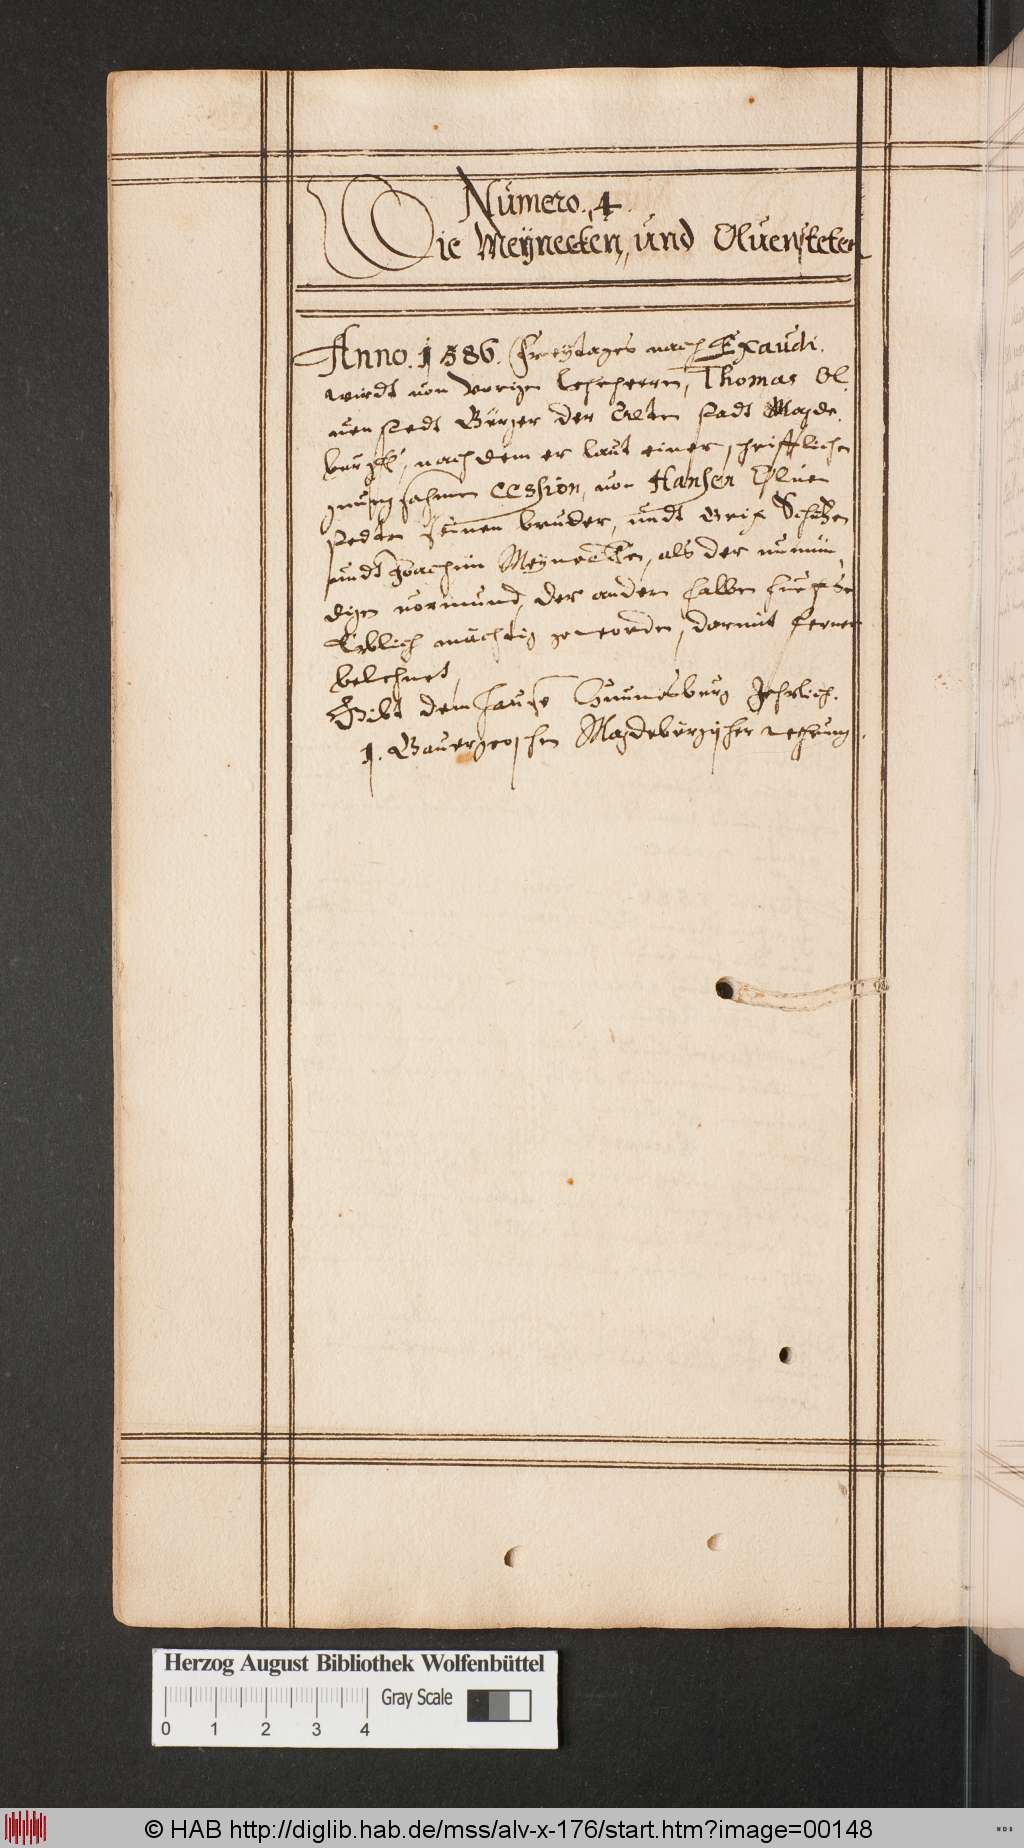 Numero. 4.
Die Meÿnecken, und Oluensteten
Anno. 1586. Freÿtages nach Exaudi.
wirdt von vorigen lehenherrn, Thomas Ol.
uenstedt Bürger der Alten stadt Magde.
burgk, nachdem er laut einer schrifftlichen
gnugsahmen Cession, von Hansen Oluen
stedten seinen bruder, undt Schützen
undt Joachim Meÿnecken, als der unmün
digen vormund, der andern halben
Erblich mächtig geworden, darmit ferner
belehnet,
Gibt dem hause Jehrlich.
1. Magdeburgischer
Herzog August Bibliothek Wolfenbüttel
Gray Scale
0 1 2 3 4
© HAB http://diglib.hab.de/mss/alv-x-176/start.htm?image=00148